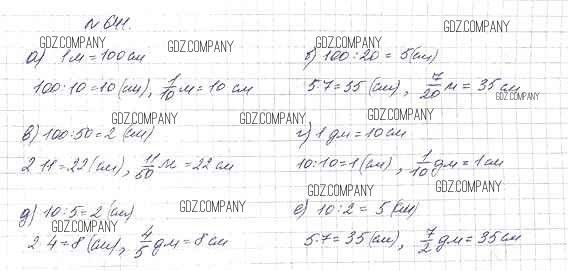 № 641.
GDZ.COMPANY GDZ.COMPANY GDZ.COMPANY GDZ.COMPANY
а) 1 м = 100 см
100:10=10 (см), 1/10 м = 10 см
б) 100:20 = 5 (см)
5·7=35 (см), 7/20 м = 35 см
GDZ.COMPANY
GDZ.COMPANY GDZ.COMPANY GDZ.COMPANY
в) 100:50=2 (см)
2·11=22 (см), 11/50 м = 22 см
г) 1 дм = 10 см
10:10=1 (см), 1/10 дм = 1 см
GDZ.COMPANY GDZ.COMPANY GDZ.COMPANY
д) 10:5=2 (см)
GDZ.COMPANY
2·4=8 (см), 4/5 дм = 8 см
е) 10:2 = 5 (см)
5·7=35 (см), 7/2 дм = 35 см